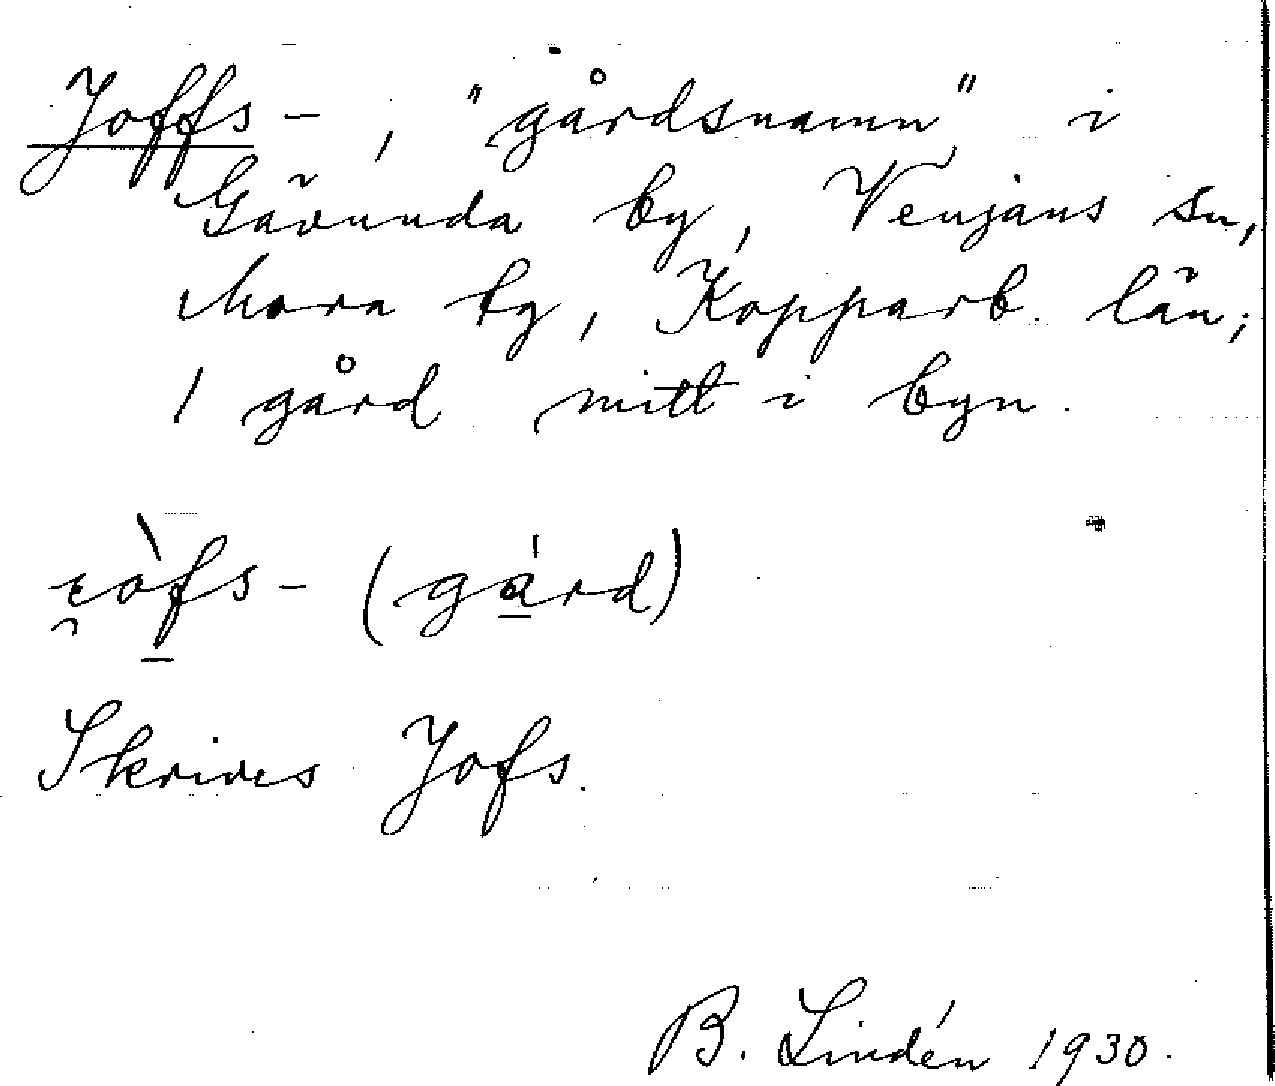 Joffs-, "gårdsnamn" i
Gävunda by, Venjans sn,
Mora tg, Kopparb. län;
1 gård mitt i byn.
(gård)
Skrives Jofs.
B. Lindén 1930.